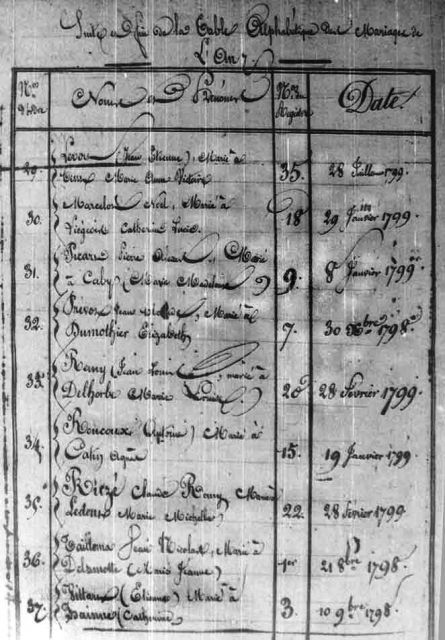 Suite et Fin de la Table Alphabétique des Mariages de
L'An 7.
Nos d'Ordre Noms et Prénoms Nos Registre Date
29. Levou (Jean Etienne), Marié à
Marie Anne Victoire 35. 28 Juillet 1799.
30. Marcelon Noel, Marié à
Catherine Lucie. 18 29 Janvier 1799.
31. Picard Pierre Marié
à Caby (Marie Madelaine) 9. 8 Janvier 1799
32. Prevost Jean Marié à
Dumothier Elizabeth 7. 30 Xbre 1798
33. Remy (Jean Louis), marié à
Delhorbe Marie Louise 28 Février 1799
34. Roucoux (Antoine) Marié à
Cahy 15. 19 Janvier 1799
35. Ritzé Claude Remy Marié à
Ledent Marie Michelle 22. 28 Février 1799
36. Tailloma Jean Nicolas, Marié à
Delamotte (Marie Jeanne) 1er 21 8bre 1798.
37. Villain (Etienne) Marié à
(Catherine) 3. 10 9bre 1798.